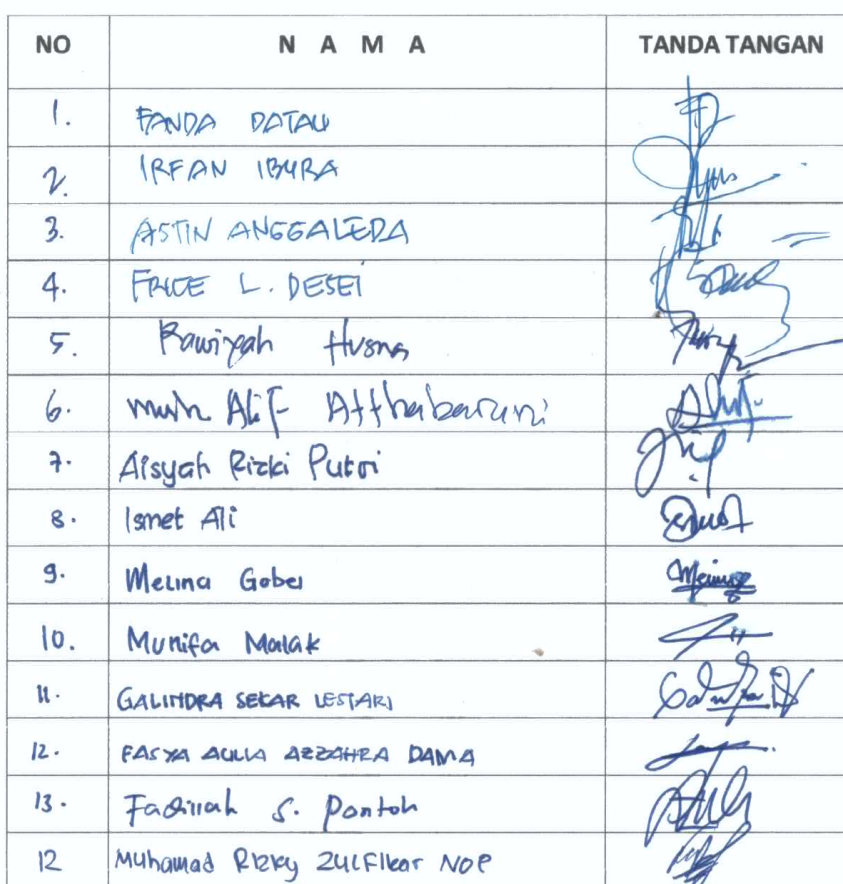 NO N A M A TANDA TANGAN
1. FANDA DATAU
2. IRFAN IBURA
3. ASTIN ANGGALEDA
4. FRICE L. DESEI
5. Rawiyah Husna
6. Muh Alif Atthabarani
7. Aisyah Rizki Putri
8. Ismet Ali
9. Melina Gobel
10. Munifa Malak
11. GALINDRA SEKAR LESTARI
12. FASYA AULIA AZZAHRA DAMA
13. Fadillah S. Pontoh
12 Muhamad Rizky Zulfikar NOE